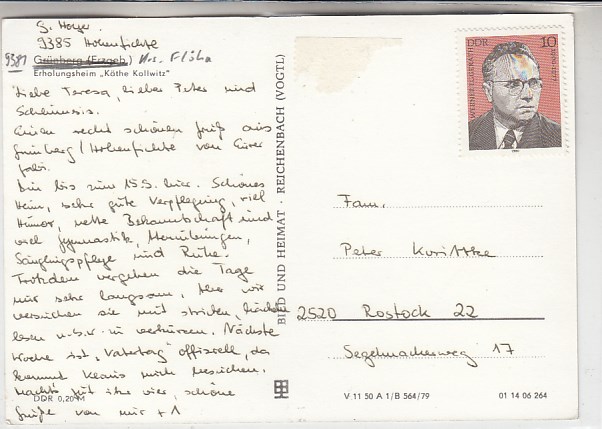 G. Hoyer
9385 Hohenfichte
9381 Grünberg (Erzgeb.) Krs. Flöha
Erholungsheim „Käthe Kollwitz"
Liebe Teresa, lieber Peter und
Einen recht schönen Gruß aus
Grünberg/Hohenfichte von Eurer
Gabi.
Bin bis zum 15.9. hier. Schönes
Heim, sehr gute Verpflegung, viel
Humor, nette Bekanntschaft und
viel Gymnastik, Atemübungen,
Säuglingspflege und Ruhe.
Trotzdem vergehen die Tage
nur sehr langsam, aber wir
versuchen sie mit stricken,
lesen u.s.w. zu verkürzen. Nächste
Woche ist „Vatertag" offiziell, da
kommt Klaus mich besuchen.
Macht's gut ihr vier, schöne
Grüße von mir + 1
DDR 0,20 M
BILD UND HEIMAT · REICHENBACH (VOGTL)
DDR 10
Fam.
Peter Korittke
2520 Rostock 22
Segelmacherweg 17
V 11 50 A 1/B 564/79
01 14 06 264